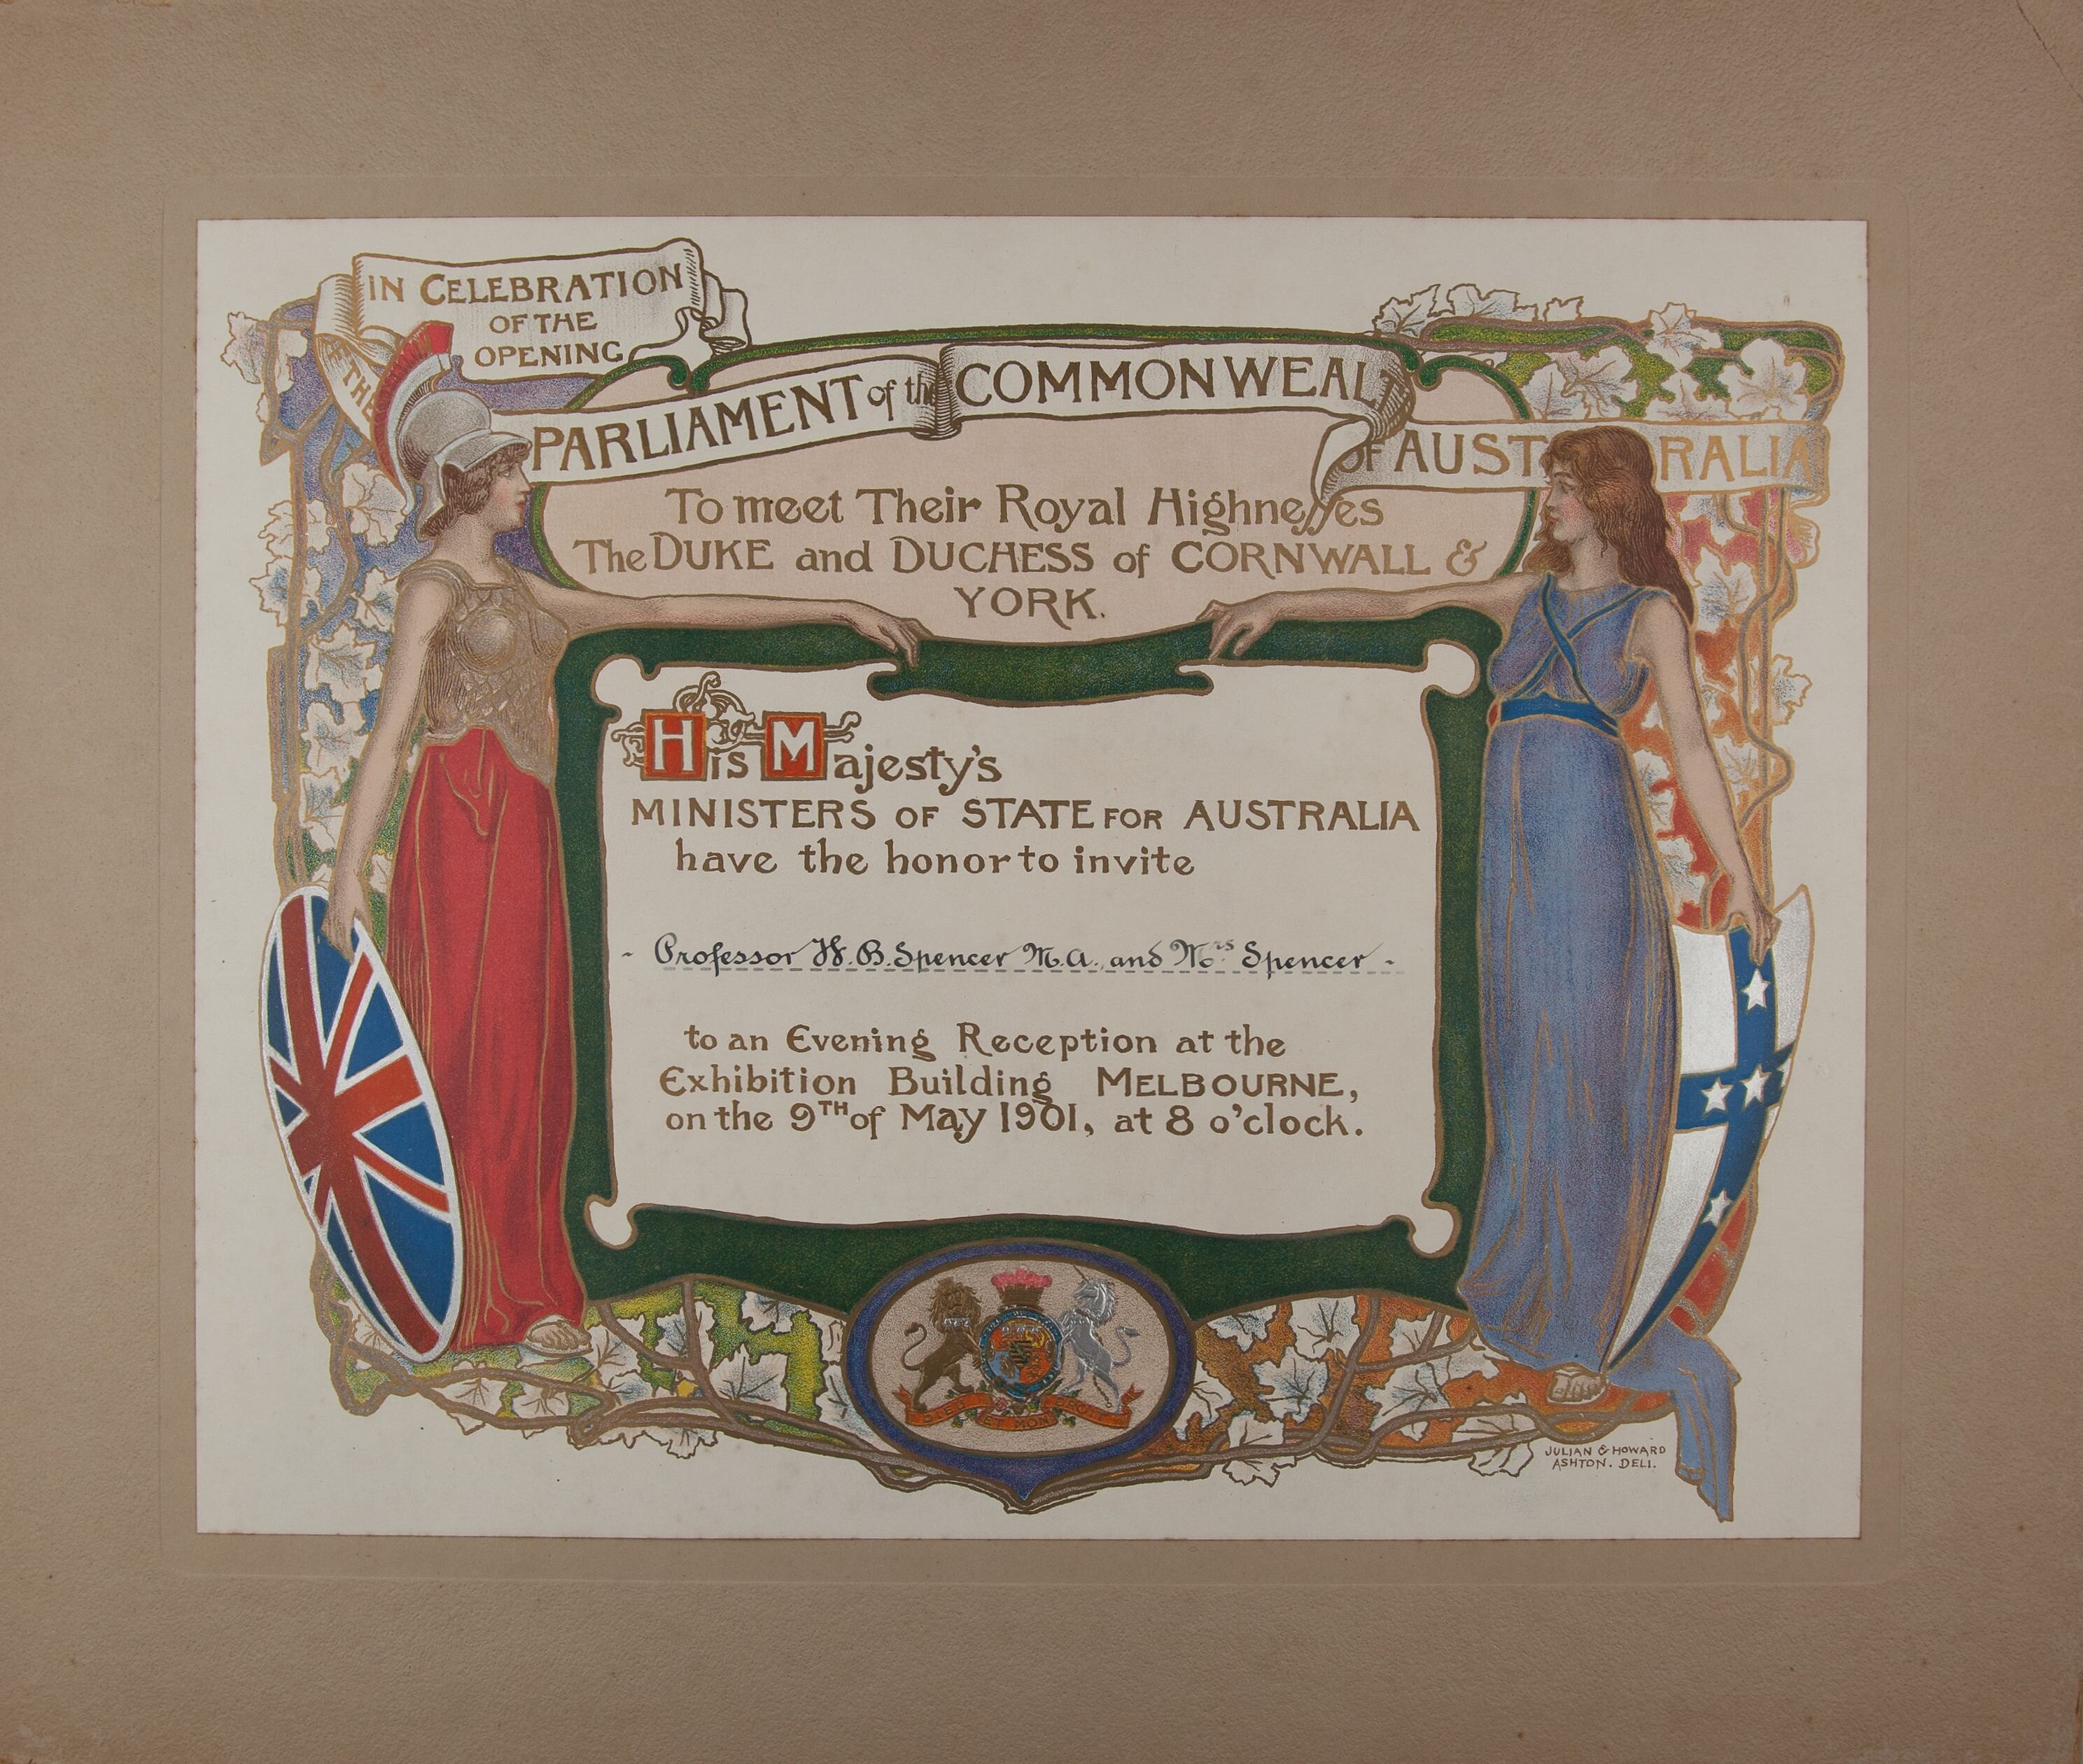 IN CELEBRATION
OF THE
OPENING
OF THE
PARLIAMENT of the COMMONWEALTH
OF AUSTRALIA
To meet Their Royal Highnesses
The DUKE and DUCHESS of CORNWALL &
YORK.
His Majesty's
MINISTERS OF STATE FOR AUSTRALIA
have the honor to invite
- Professor W. B. Spencer M.A. and Mrs Spencer -
to an Evening Reception at the
Exhibition Building MELBOURNE,
on the 9TH of May 1901, at 8 o'clock.
DIEU ET MON DROIT
JULIAN & HOWARD
ASHTON. DELI.